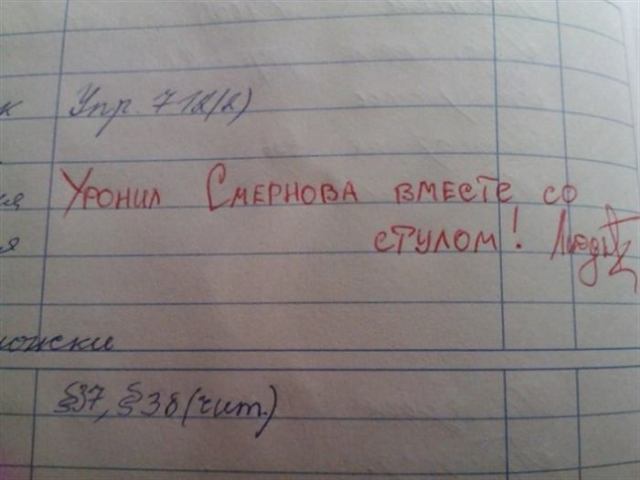 к Упр. 712(2)
Уронил Смернова вместе со
стулом!
§37, §38 (чит.)